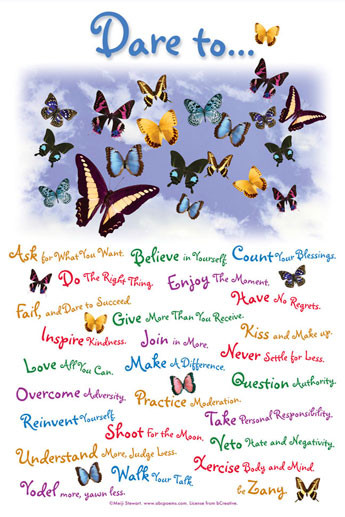 Dare to...
Ask for What You Want. Believe in Yourself. Count Your Blessings.
Do The Right Thing. Enjoy The Moment.
Fail, and Dare to Succeed. Have No Regrets.
Give More Than You Receive.
Inspire Kindness. Join in More. Kiss and Make up.
Love All You Can. Make A Difference. Never Settle for Less.
Overcome Adversity. Practice Moderation. Question Authority.
Reinvent Yourself. Take Personal Responsibility.
Shoot For the Moon. Veto Hate and Negativity.
Understand More, Judge Less. Xercise Body and Mind.
Yodel more, yawn less. Walk Your Talk. be Zany.
©Meiji Stewart. www.abcpoems.com. License from bCreative.